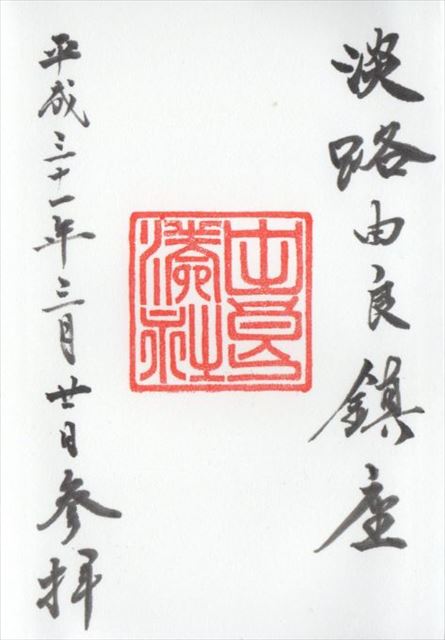 淡路由良鎮座
由良湊神社
平成三十一年三月廿日参拝